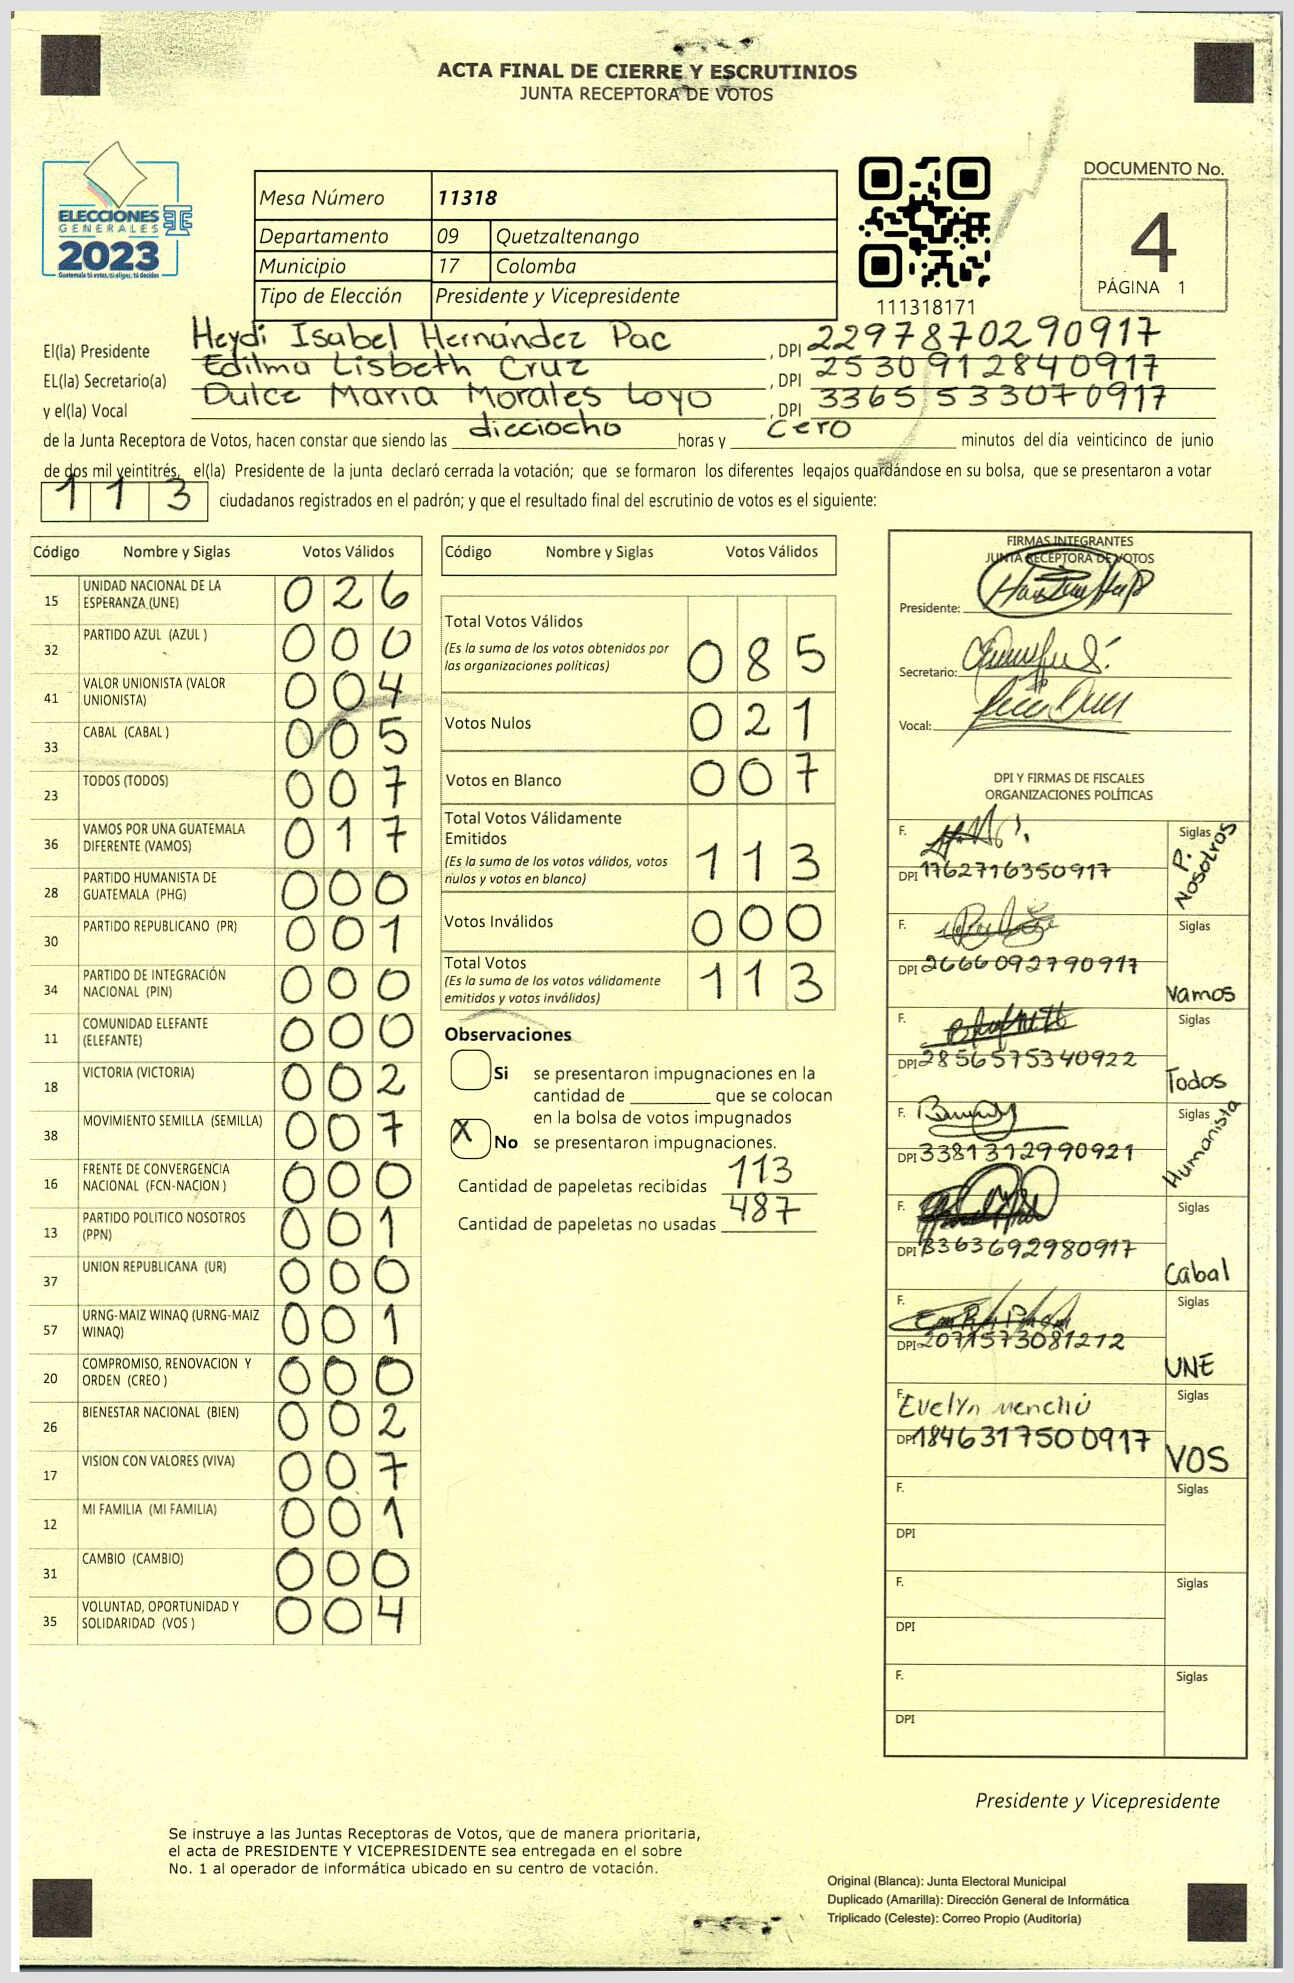 ACTA FINAL DE CIERRE Y ESCRUTINIOS
JUNTA RECEPTORA DE VOTOS
ELECCIONES
GENERALES
2023
Guatemala tú votas, tú eliges, tú decides
Mesa Número 11318
Departamento 09 Quetzaltenango
Municipio 17 Colomba
Tipo de Elección Presidente y Vicepresidente
111318171
DOCUMENTO No.
4
PÁGINA 1
El(la) Presidente Heydi Isabel Hernández Pac , DPI 2297870290917
EL(la) Secretario(a) Edilma Lisbeth Cruz , DPI 2530912840917
y el(la) Vocal Dulce María Morales Loyo , DPI 3365533070917
de la Junta Receptora de Votos, hacen constar que siendo las dieciocho horas y cero minutos del día veinticinco de junio
de dos mil veintitrés, el(la) Presidente de la junta declaró cerrada la votación; que se formaron los diferentes legajos guardándose en su bolsa, que se presentaron a votar
113 ciudadanos registrados en el padrón; y que el resultado final del escrutinio de votos es el siguiente:
Código Nombre y Siglas Votos Válidos
15 UNIDAD NACIONAL DE LA ESPERANZA (UNE) 026
32 PARTIDO AZUL (AZUL ) 000
41 VALOR UNIONISTA (VALOR UNIONISTA) 004
33 CABAL (CABAL ) 005
23 TODOS (TODOS) 007
36 VAMOS POR UNA GUATEMALA DIFERENTE (VAMOS) 017
28 PARTIDO HUMANISTA DE GUATEMALA (PHG) 000
30 PARTIDO REPUBLICANO (PR) 001
34 PARTIDO DE INTEGRACIÓN NACIONAL (PIN) 000
11 COMUNIDAD ELEFANTE (ELEFANTE) 000
18 VICTORIA (VICTORIA) 002
38 MOVIMIENTO SEMILLA (SEMILLA) 007
16 FRENTE DE CONVERGENCIA NACIONAL (FCN-NACION ) 000
13 PARTIDO POLITICO NOSOTROS (PPN) 001
37 UNION REPUBLICANA (UR) 000
57 URNG-MAIZ WINAQ (URNG-MAIZ WINAQ) 001
20 COMPROMISO, RENOVACION Y ORDEN (CREO ) 000
26 BIENESTAR NACIONAL (BIEN) 002
17 VISION CON VALORES (VIVA) 007
12 MI FAMILIA (MI FAMILIA) 001
31 CAMBIO (CAMBIO) 000
35 VOLUNTAD, OPORTUNIDAD Y SOLIDARIDAD (VOS ) 004
Código Nombre y Siglas Votos Válidos
Total Votos Válidos 085
(Es la suma de los votos obtenidos por
las organizaciones políticas)
Votos Nulos 021
Votos en Blanco 007
Total Votos Válidamente
Emitidos 113
(Es la suma de los votos válidos, votos
nulos y votos en blanco)
Votos Inválidos 000
Total Votos 113
(Es la suma de los votos válidamente
emitidos y votos inválidos)
Observaciones
Si se presentaron impugnaciones en la
cantidad de ________ que se colocan
en la bolsa de votos impugnados
X No se presentaron impugnaciones.
Cantidad de papeletas recibidas 113
Cantidad de papeletas no usadas 487
FIRMAS INTEGRANTES
JUNTA RECEPTORA DE VOTOS
Presidente:
Secretario:
Vocal:
DPI Y FIRMAS DE FISCALES
ORGANIZACIONES POLÍTICAS
F. Siglas P. Nosotros
DPI 1762716350917
F. Siglas Vamos
DPI 2666092790917
F. Siglas Todos
DPI 2856575340922
F. Siglas Humanista
DPI 3381312990921
F. Siglas Cabal
DPI 3363692980917
F. Siglas UNE
DPI 2071573081212
F. Evelyn Menchú Siglas VOS
DPI 1846317500917
F. Siglas
DPI
F. Siglas
DPI
F. Siglas
DPI
Presidente y Vicepresidente
Se instruye a las Juntas Receptoras de Votos, que de manera prioritaria,
el acta de PRESIDENTE Y VICEPRESIDENTE sea entregada en el sobre
No. 1 al operador de informática ubicado en su centro de votación.
Original (Blanca): Junta Electoral Municipal
Duplicado (Amarilla): Dirección General de Informática
Triplicado (Celeste): Correo Propio (Auditoría)